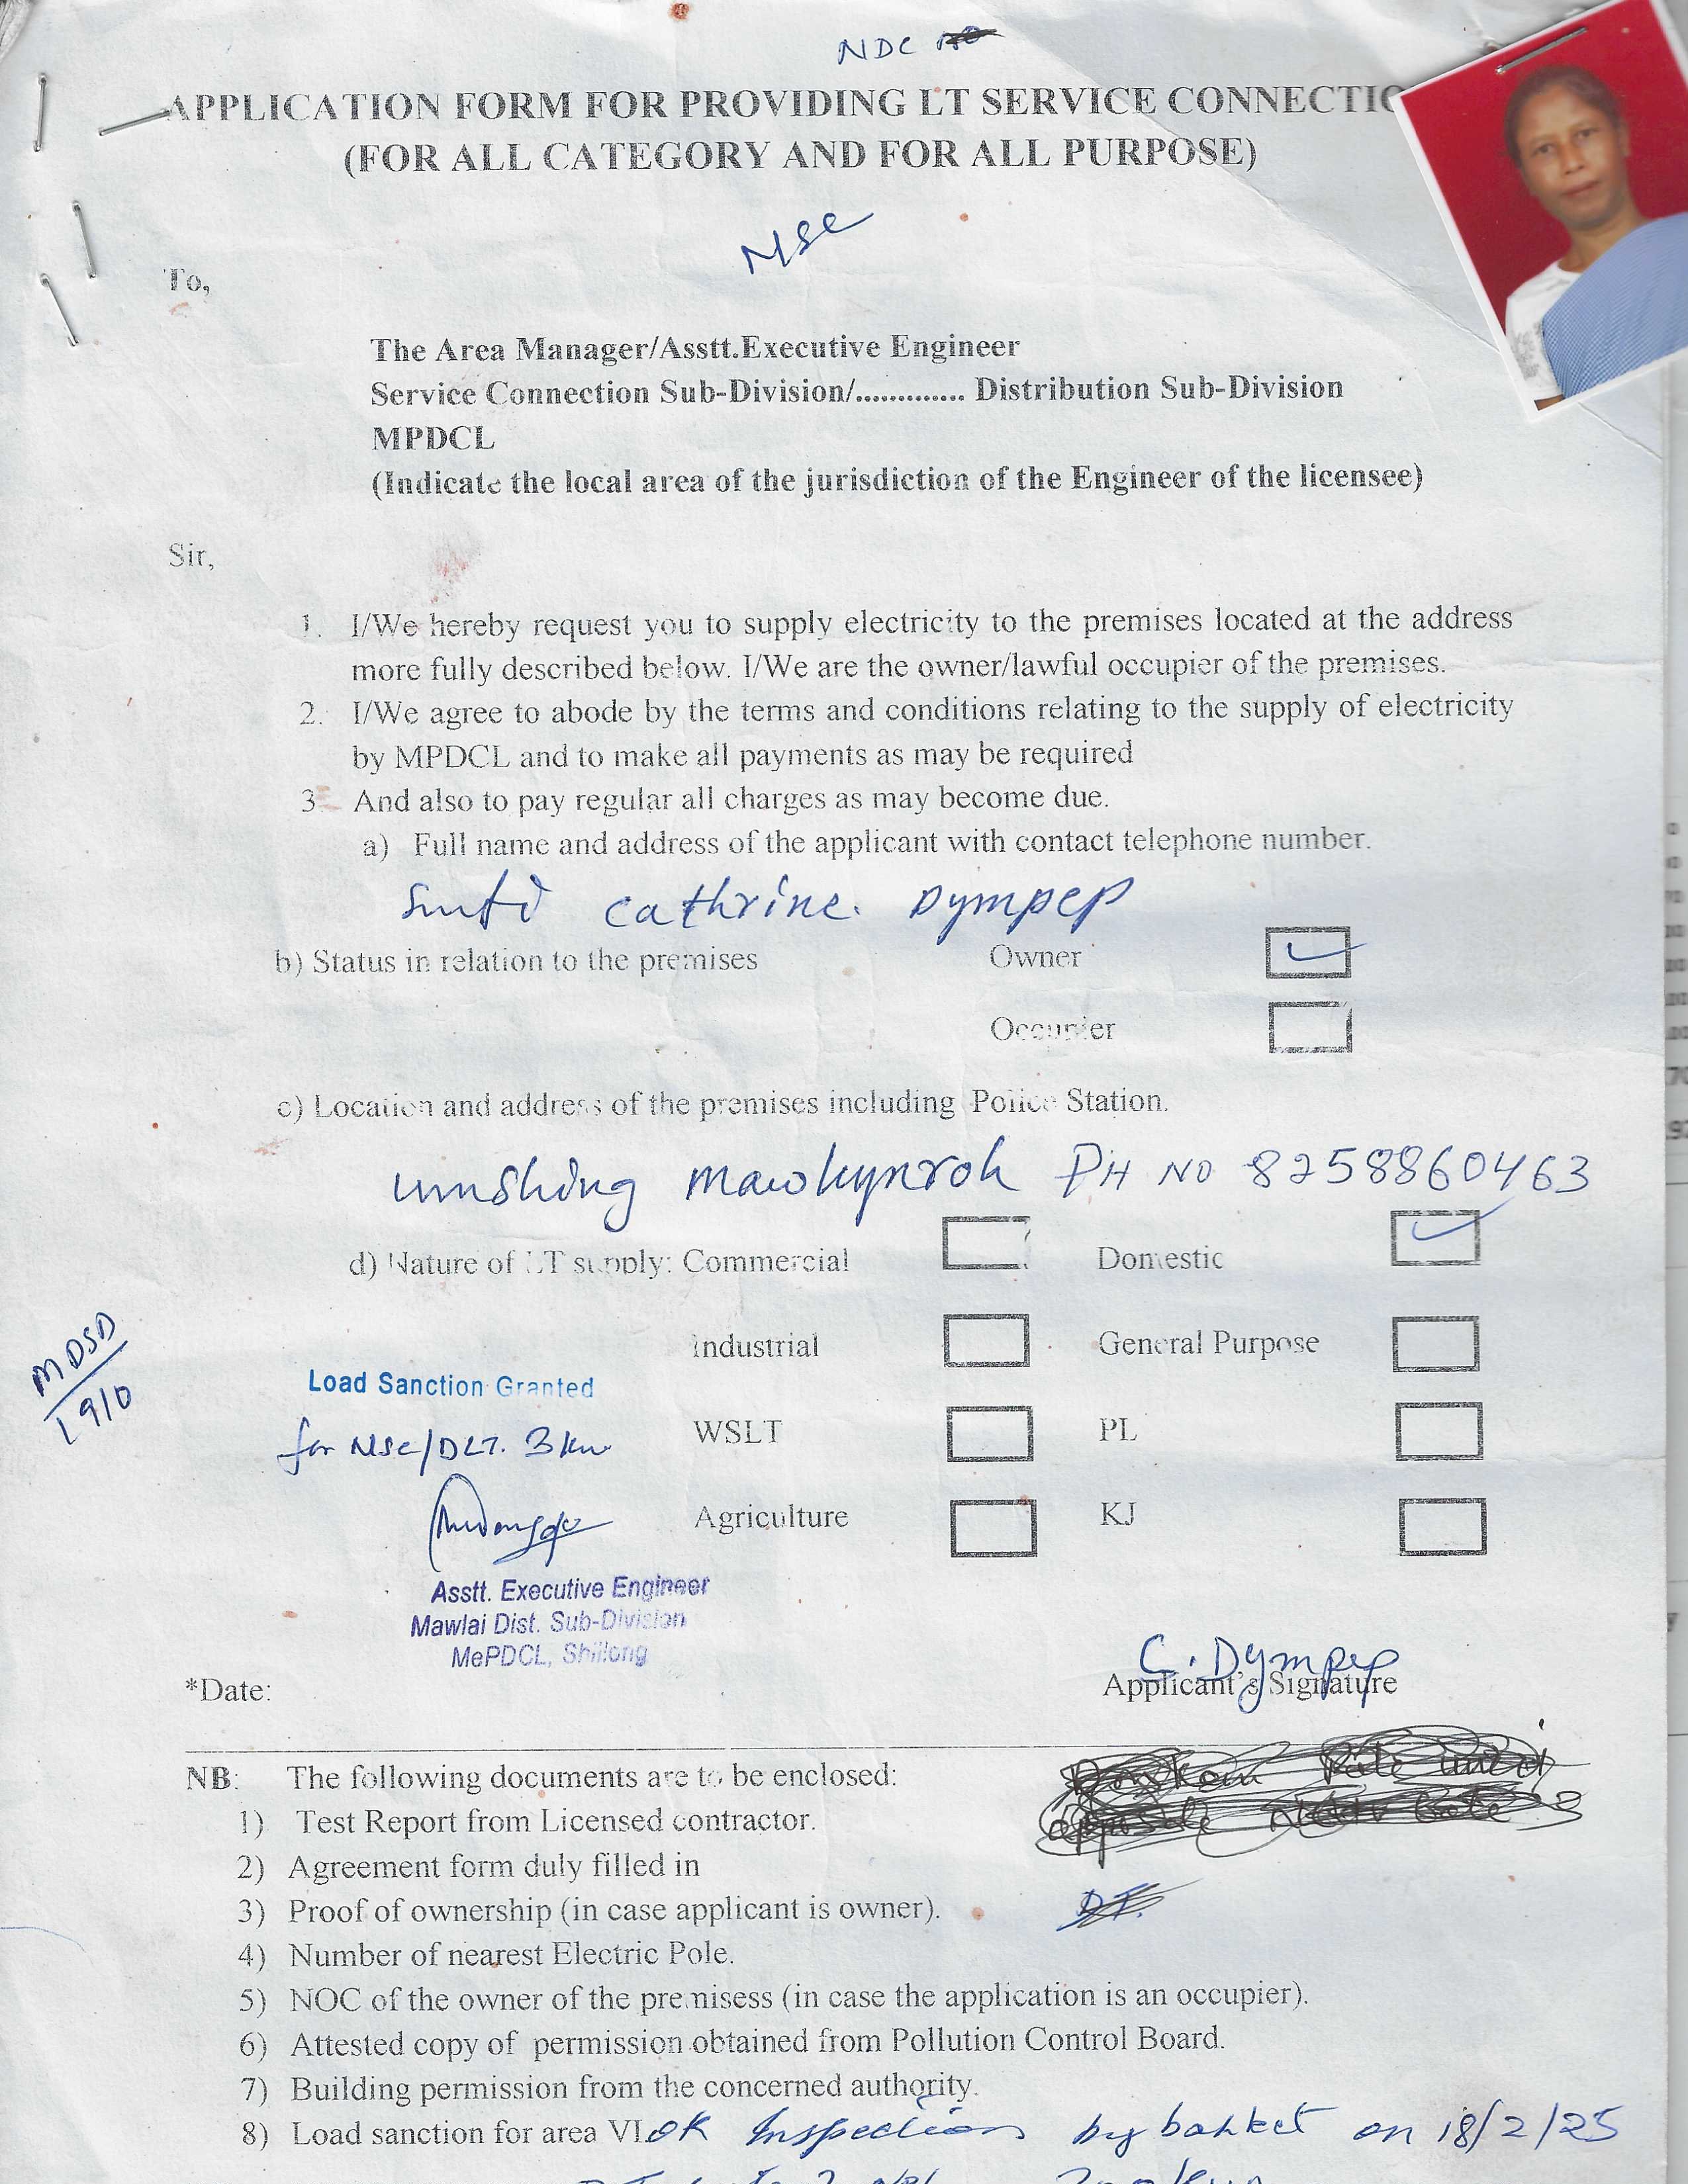 NDC
APPLICATION FORM FOR PROVIDING LT SERVICE CONNECTIO
(FOR ALL CATEGORY AND FOR ALL PURPOSE)
NSC
To,
The Area Manager/Asstt.Executive Engineer
Service Connection Sub-Division/............. Distribution Sub-Division
MPDCL
(Indicate the local area of the jurisdiction of the Engineer of the licensee)
Sir,
1. I/We hereby request you to supply electricity to the premises located at the address
more fully described below. I/We are the owner/lawful occupier of the premises.
2. I/We agree to abode by the terms and conditions relating to the supply of electricity
by MPDCL and to make all payments as may be required
3. And also to pay regular all charges as may become due.
a) Full name and address of the applicant with contact telephone number.
Smti Cathrine. Dympep
b) Status in relation to the premises Owner
Occupier
c) Location and address of the premises including Police Station.
umshing mawkynroh PH NO 8258860463
d) Nature of LT supply: Commercial Domestic
Industrial General Purpose
MDSD
1910
Load Sanction Granted
WSLT PL
for NSC/DLT. 3 kw
Agriculture KJ
Asstt. Executive Engineer
Mawlai Dist. Sub-Division
MePDCL, Shillong
C. Dympep
*Date: Applicant's Signature
NB: The following documents are to be enclosed:
1) Test Report from Licensed contractor.
2) Agreement form duly filled in
3) Proof of ownership (in case applicant is owner).
4) Number of nearest Electric Pole.
5) NOC of the owner of the premisess (in case the application is an occupier).
6) Attested copy of permission obtained from Pollution Control Board.
7) Building permission from the concerned authority.
8) Load sanction for area VI. OK Inspection by bahket on 18/2/25